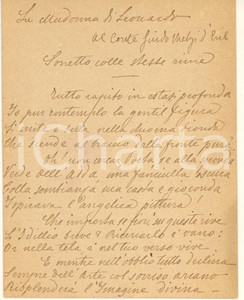 La Madonna di Leonardo
Al Conte Guido Melzi d'Eril
Sonetto colle stesse rime
Tutto rapito in estasi profonda
Io pur contemplo la gentil figura
L'arte bella nella chioma bionda
Che scende al braccio alla fonte pura
vede dell'Adda una fanciulla
Tolta sembianza una casta e gioconda
Ispirava l'angelica pittura!
Che importa se fior su queste rive
L'Idillio breve? Ricercarlo è vano:
Or nella tela e nel tuo verso vive.
E mentre nell'obblio tutto declina
Sempre dell'arte col sorriso arcano
Risplenderà l'Imagine divina.